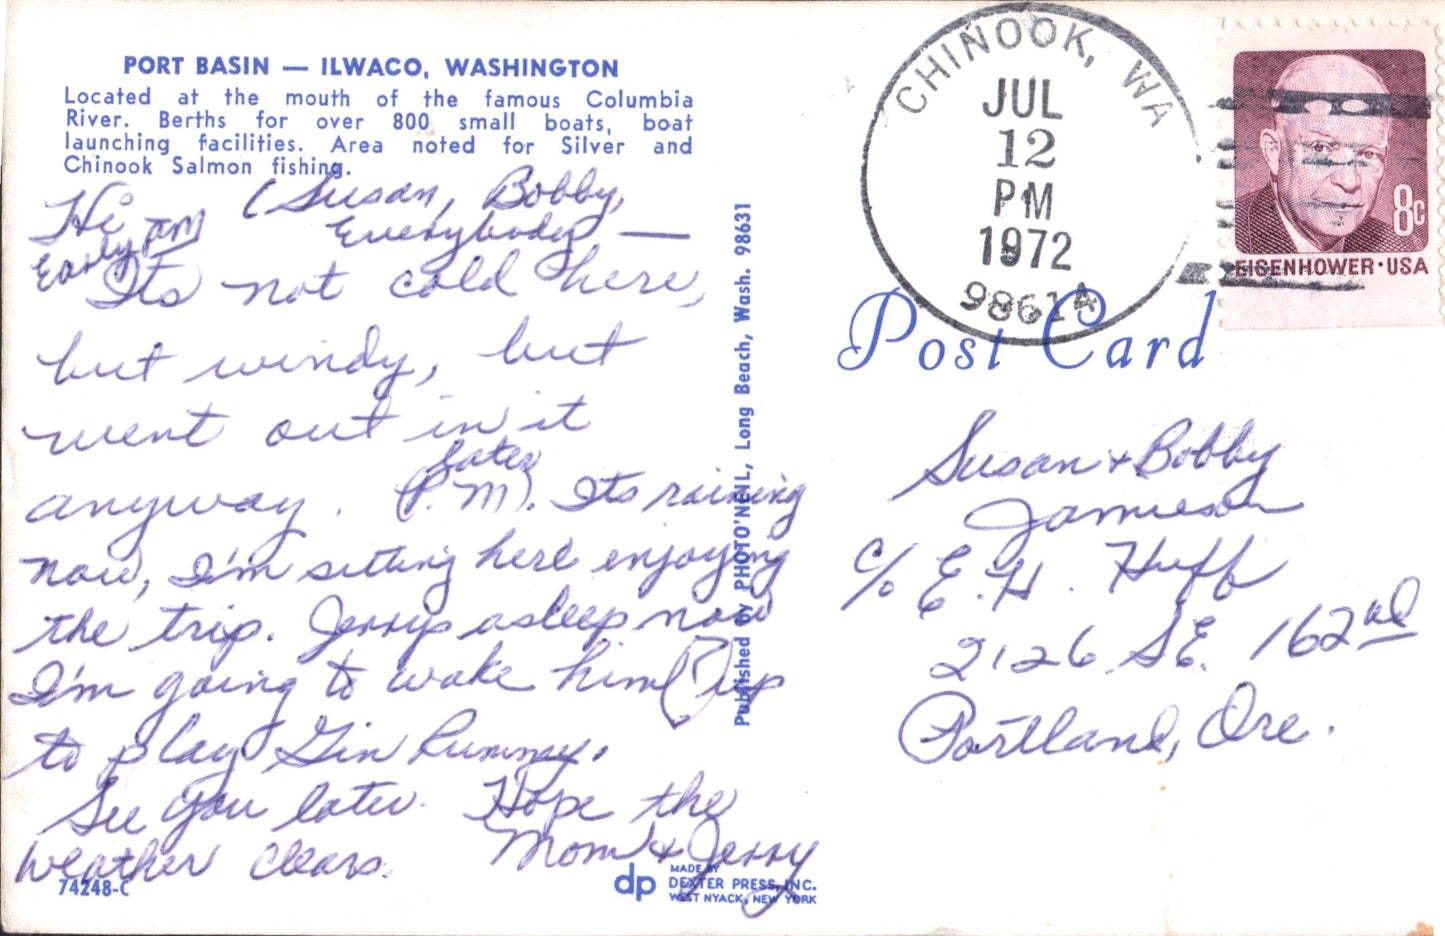 PORT BASIN — ILWACO, WASHINGTON
Located at the mouth of the famous Columbia
River. Berths for over 800 small boats, boat
launching facilities. Area noted for Silver and
Chinook Salmon fishing.
Hi (Susan, Bobby,
Everybody —
Early AM
Its not cold here,
but windy, but
went out in it
anyway. Later (P.M). Its raining
now, I'm sitting here enjoying
the trip. Jerrys asleep now
I'm going to wake him (?) up
to play Gin Rummy.
See you later. Hope the
weather clears. Mom & Jerry
74248-C
dp
MADE BY
DEXTER PRESS, INC.
WEST NYACK, NEW YORK
Published by PHOTO'NEIL, Long Beach, Wash. 98631
CHINOOK, WA
JUL
12
PM
1972
98614
8c
EISENHOWER·USA
Post Card
Susan + Bobby
Jamieson
c/o E. H. Huff
2126 SE. 162nd
Portland, Ore.